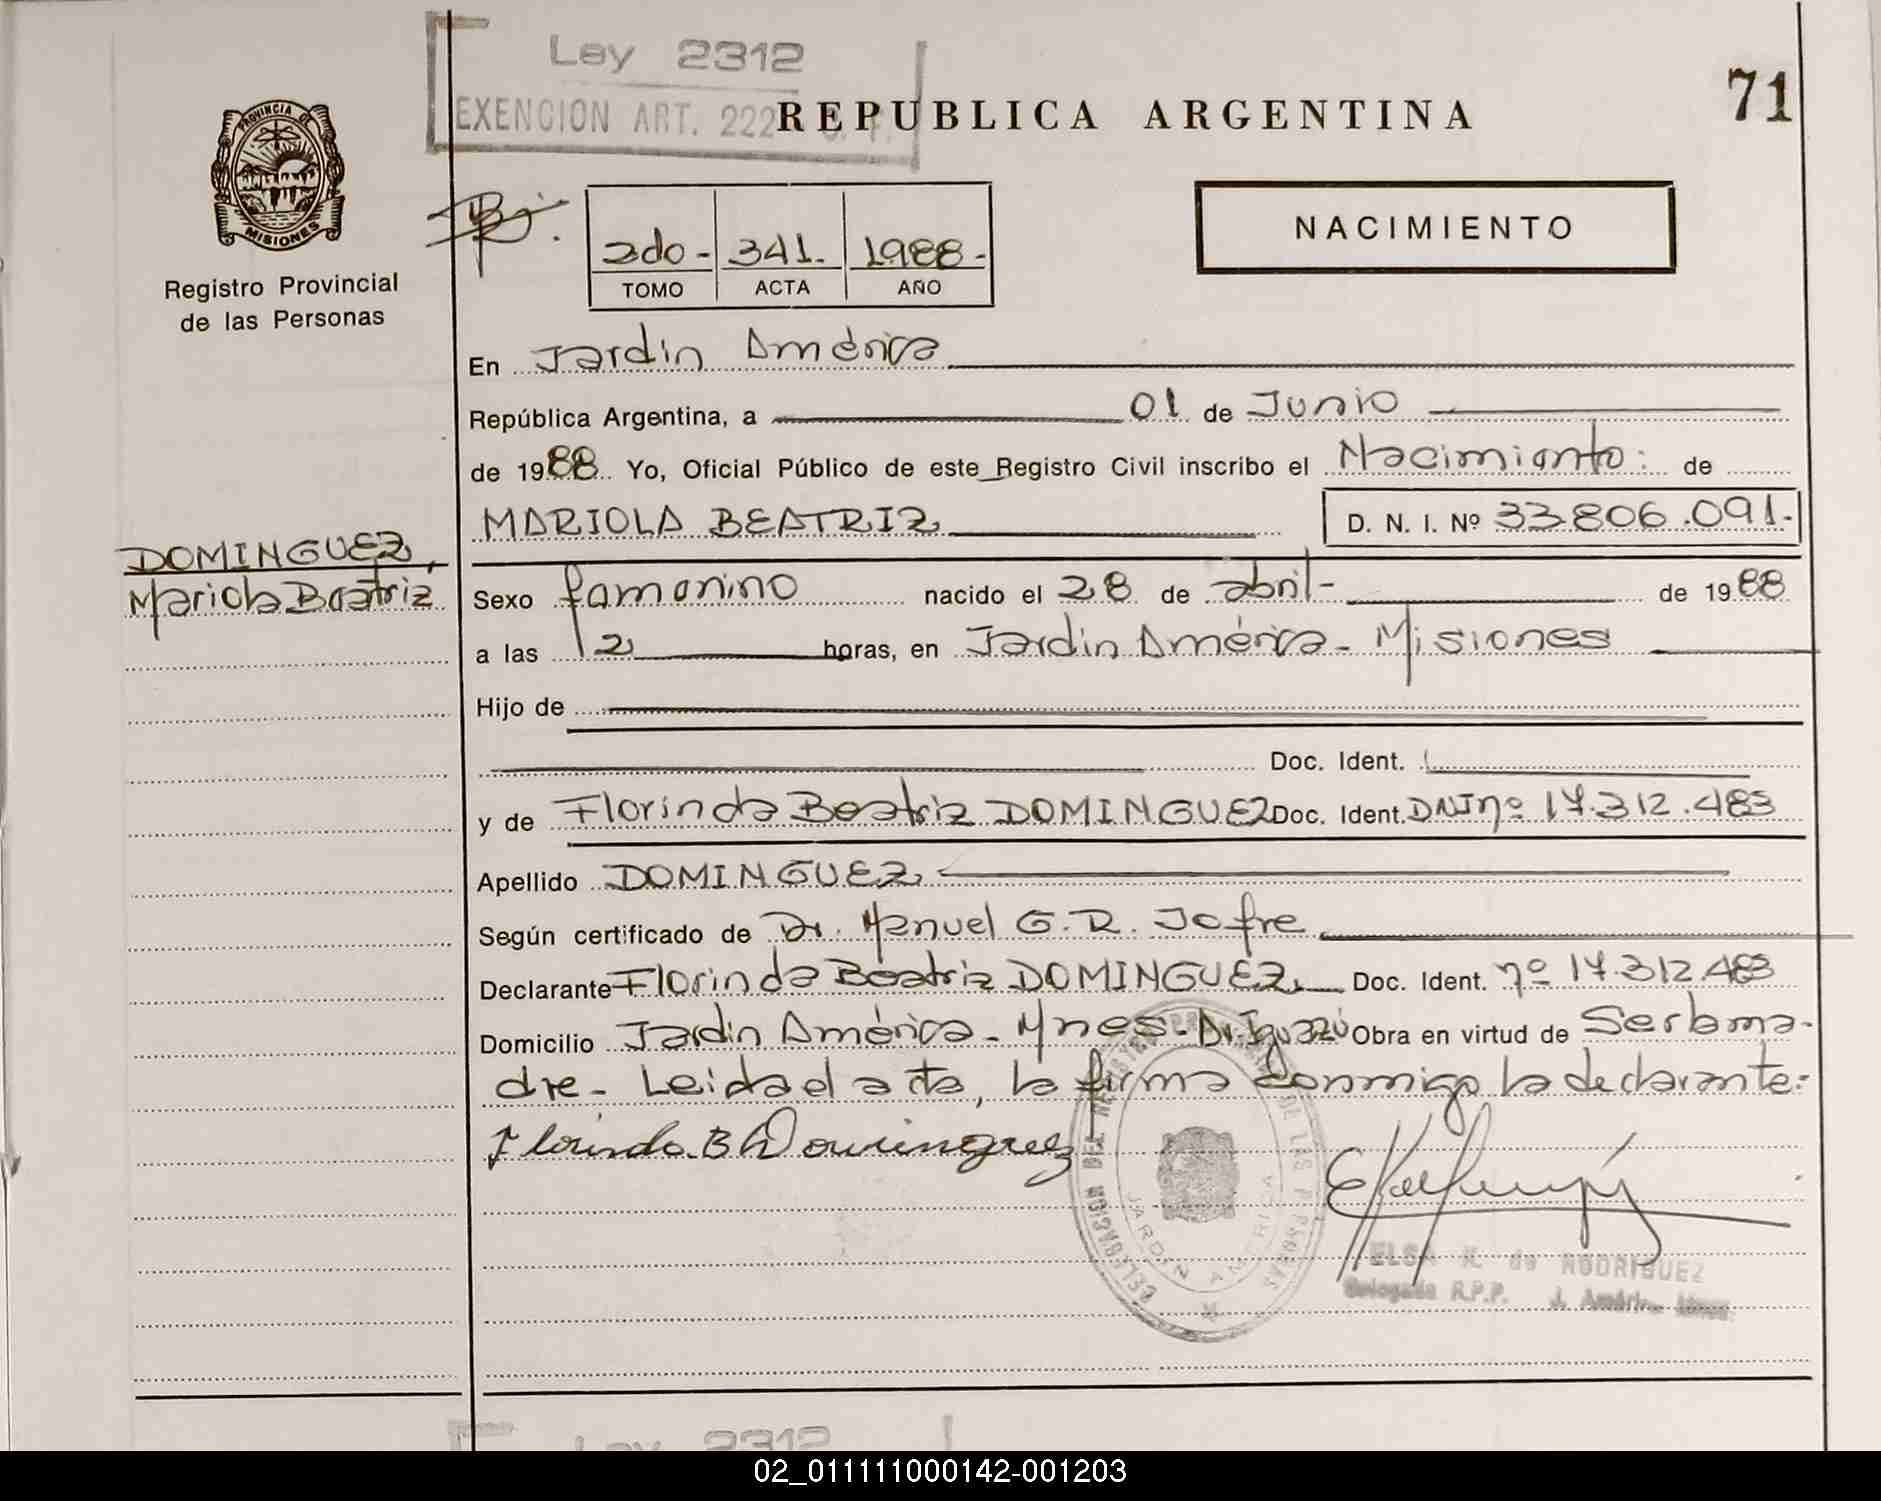 Ley 2312
EXENCION ART. 222
REPUBLICA ARGENTINA
71
PROVINCIA DE
MISIONES
Registro Provincial
de las Personas
2do - 341. 1988.-
TOMO ACTA AÑO
NACIMIENTO
En Jardin América
República Argentina, a 01 de Junio
de 1988 Yo, Oficial Público de este Registro Civil inscribo el Nacimiento: de
MARIOLA BEATRIZ D. N. I. Nº 33.806.091.-
DOMINGUEZ,
Mariola Beatriz
Sexo femenino nacido el 28 de abril- de 1988
a las 12 horas, en Jardin América - Misiones
Hijo de
Doc. Ident.
y de Florinda Beatriz DOMINGUEZ Doc. Ident. DNI nº 17.312.483
Apellido DOMINGUEZ
Según certificado de Dr. Manuel G. R. Jofre
Declarante Florinda Beatriz DOMINGUEZ, Doc. Ident. nº 17.312.483
Domicilio Jardin América - Mnes - Av. Iguazú Obra en virtud de Ser la ma-
dre - Leida el acta, la firma conmigo la declarante:
Florinda B Dominguez
DELEGACION DEL REGISTRO PROVINCIAL DE LAS PERSONAS
JARDIN AMERICA
ELSA K. de RODRIGUEZ
Delegada R.P.P. J. América Mnes.
Ley 2312
02_011111000142-001203